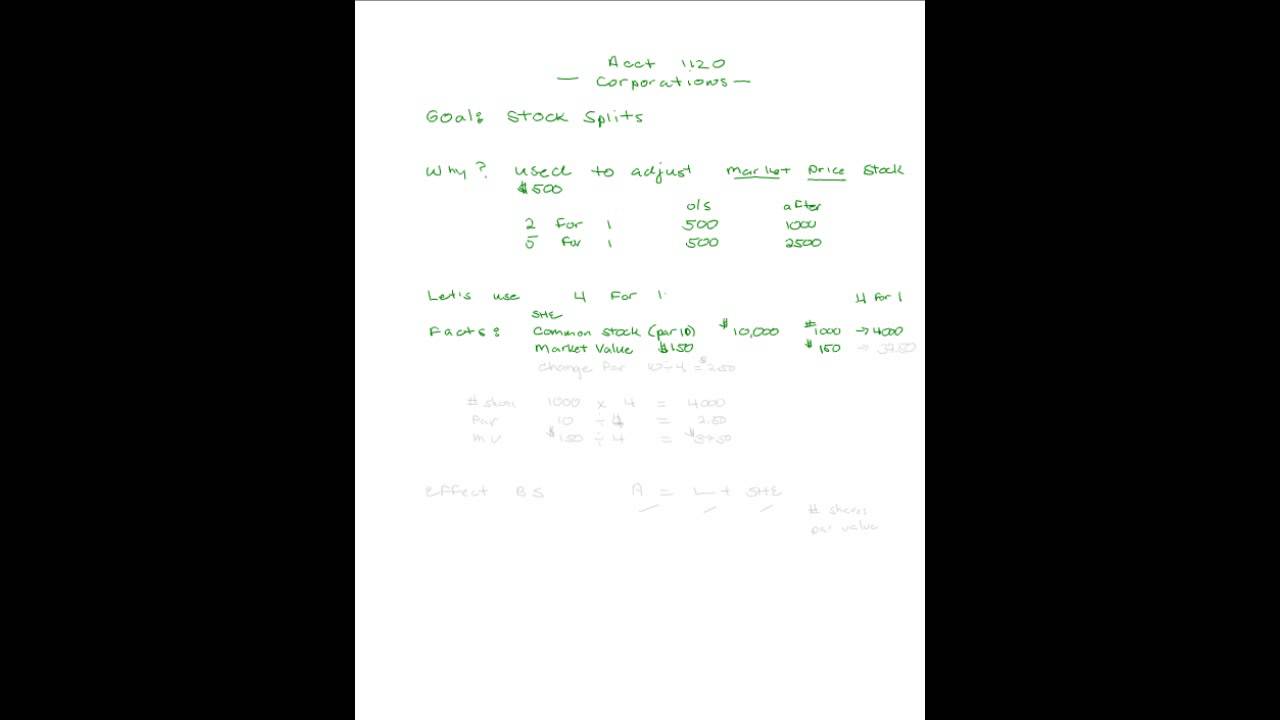 Acct 1120
— Corporations —
Goal: Stock Splits
Why? used to adjust market price stock
$500
o/s after
2 for 1 500 1000
5 for 1 500 2500
Let's use 4 for 1. 4 for 1
SHE
Facts: Common Stock (par 10) $10,000 #1000 → 4000
Market Value $150 $150 → 37.50
Change Par 10 ÷ 4 = $2.50
# share 1000 x 4 = 4000
Par 10 ÷ 4 = 2.50
MV $150 ÷ 4 = $37.50
Effect BS A = L + SHE
# shares
par value